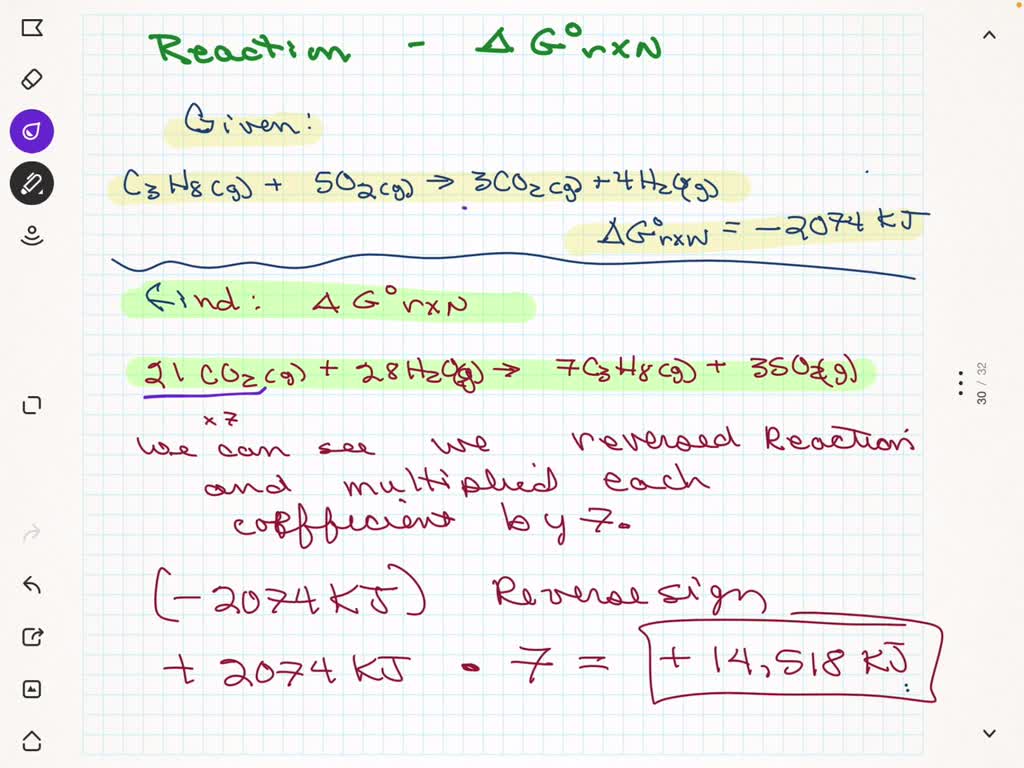 Reaction - ΔG°rxN
Given:
C3H8(g) + 5O2(g) → 3CO2(g) + 4H2O(g)
ΔG°rxN = -2074 KJ
Find: ΔG°rxN
21CO2(g) + 28H2O(g) → 7C3H8(g) + 35O2(g)
x7
we can see we reversed Reaction
and multiplied each
coefficient by 7.
(-2074 KJ) Reverse sign
+ 2074 KJ • 7 = + 14,518 KJ
30 / 32